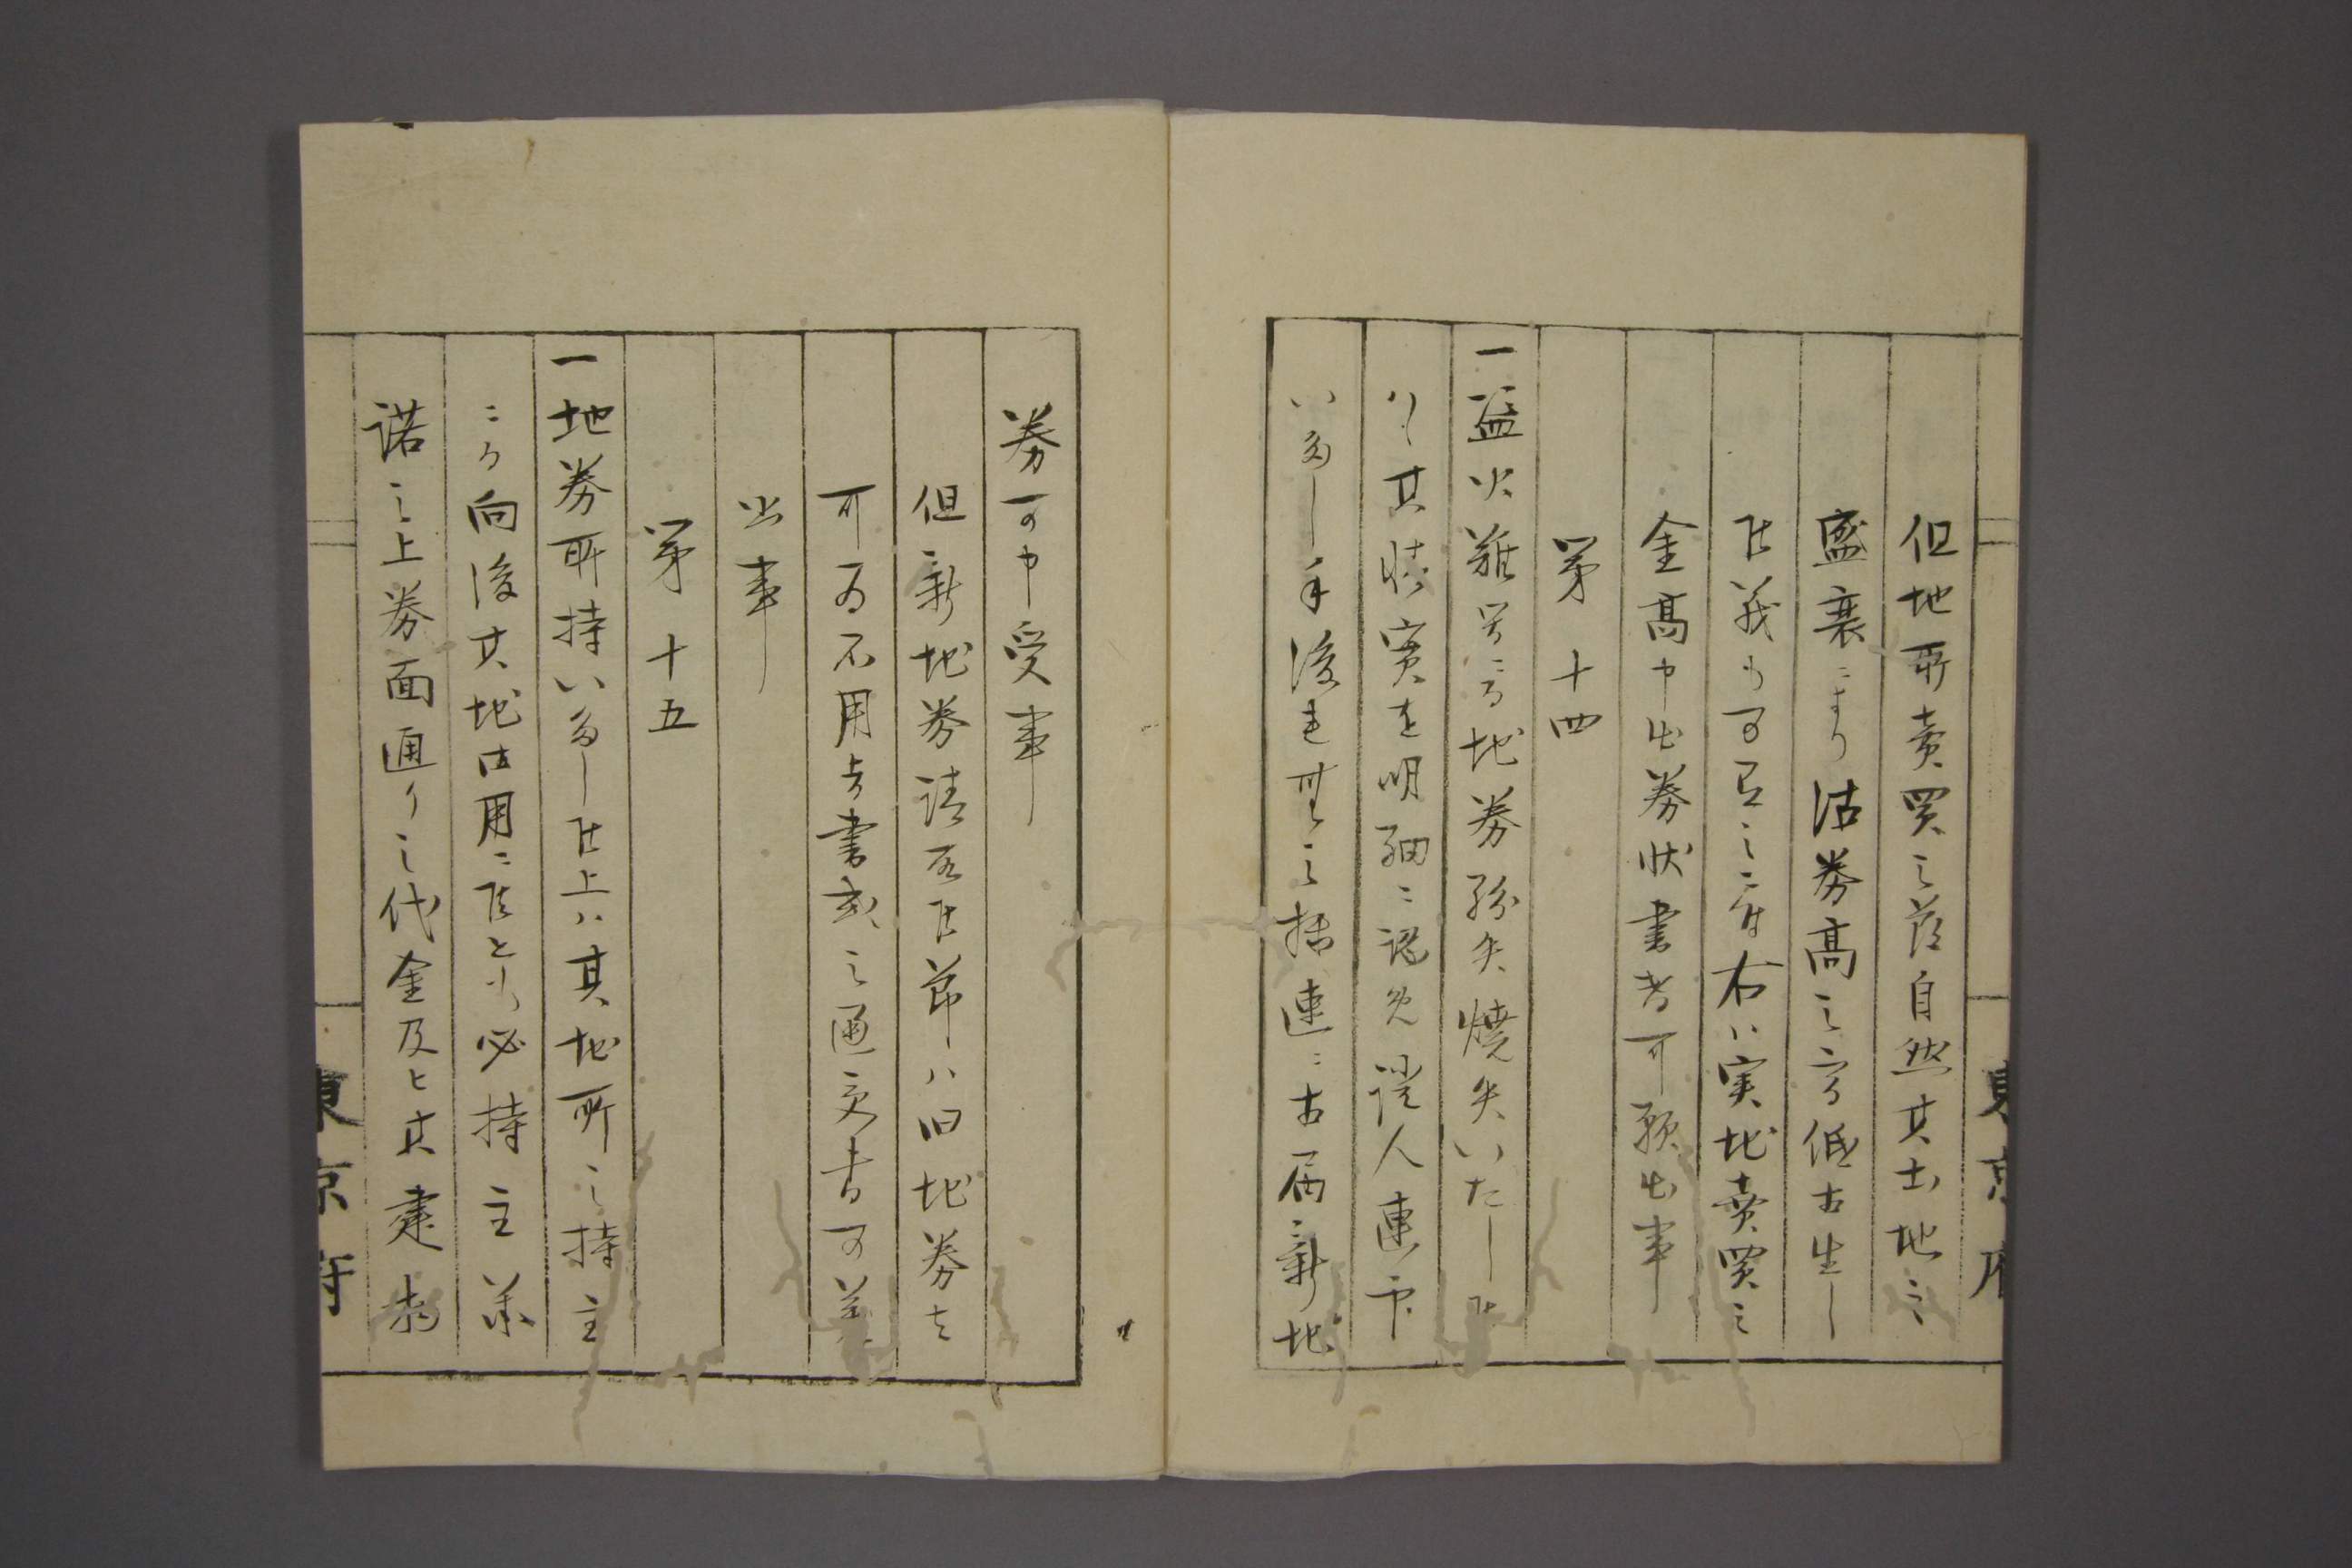 但地所売買之節自然其土地之
盛衰により沽券高之高低も生し
候義も可有之ニ付右ハ実地売買之
金高申出券状書替可願出事
第十四
一盗火難等ニ而地券紛失焼失いたし候
ハヽ其情実を明細ニ認め證人連印
いたし年後ニ至
連ニ相届新地
券可申受事
但新地券請取候節ハ旧地券を
可為不用与書載之通
出事
第十五
一地券所持いたし候上ハ其地所之持主
ニ而向後其地御用ニ候とも必持主承
諾之上券面通り之代金及ヒ其建物
東京府
東京府